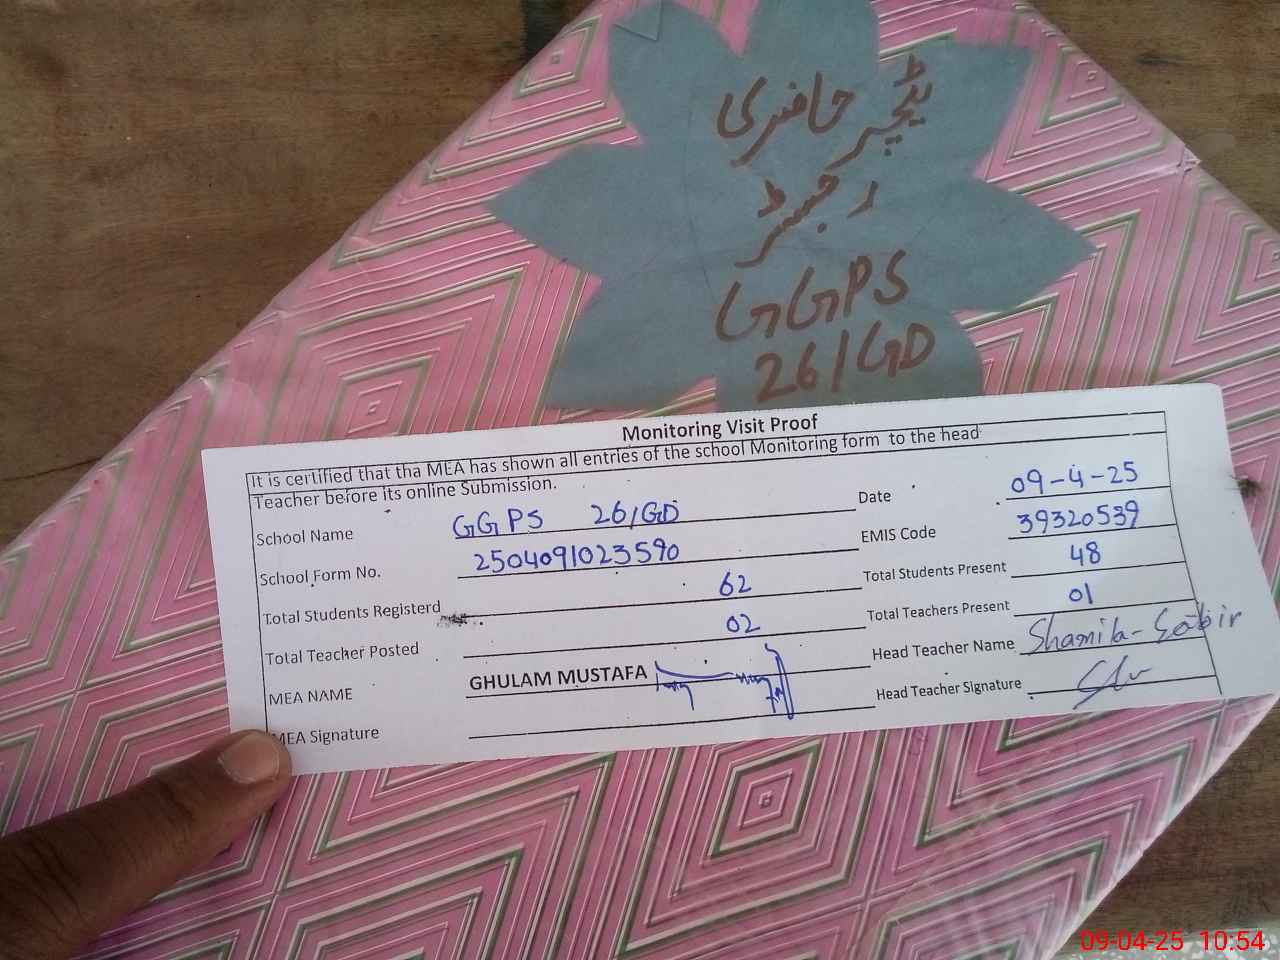 ٹیچر حاضری
رجسٹر
GGPS
26/GD
Monitoring Visit Proof
It is certified that tha MEA has shown all entries of the school Monitoring form to the head
Teacher before its online Submission.
School Name GGPS 26/GD Date 09-4-25
School Form No. 2504091023590 EMIS Code 39320539
Total Students Registerd 62 Total Students Present 48
Total Teacher Posted 02 Total Teachers Present 01
MEA NAME GHULAM MUSTAFA Head Teacher Name Shamila-Sabir
MEA Signature Head Teacher Signature
09-04-25 10:54